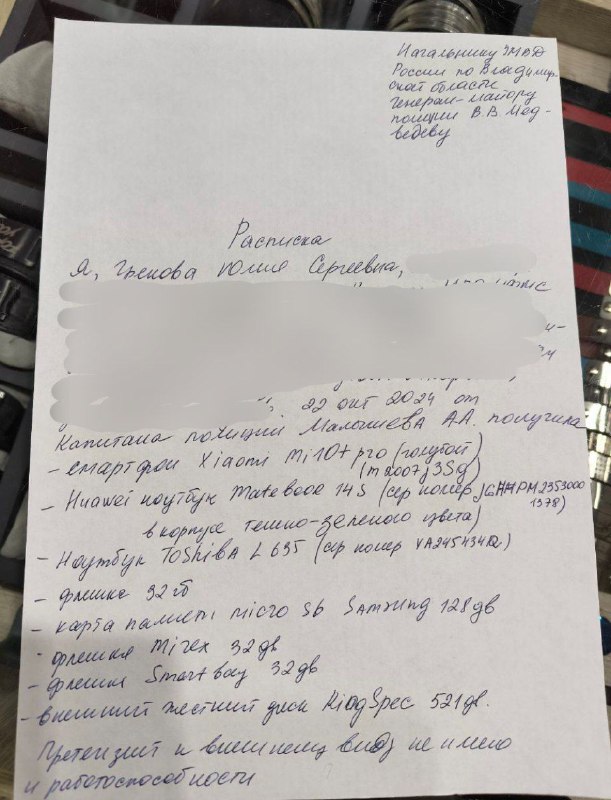 Начальнику УМВД
России по Владимир-
ской области
генерал-майору
полиции В.В. Мед-
ведеву
Расписка
Я, Юлия Сергеевна,
22 окт 2024 от
капитана полиции А.А. получила
- смартфон Xiaomi Mi 10t pro (голубой)
(m2007j3Sg)
- Huawei ноутбук Matebook 14S (сер номер
1378)
в корпусе темно-зеленого цвета)
- Ноутбук Toshiba L 635 (сер номер
- флешка 32гб
- карта памяти micro Sd Samsung 128дв
- флешка Mirex 32дв
- флешка Smartbay 32дв
- внешний жесткий диск KingSpec 521дв.
Претензий к внешнему виду не имею
и работоспособности